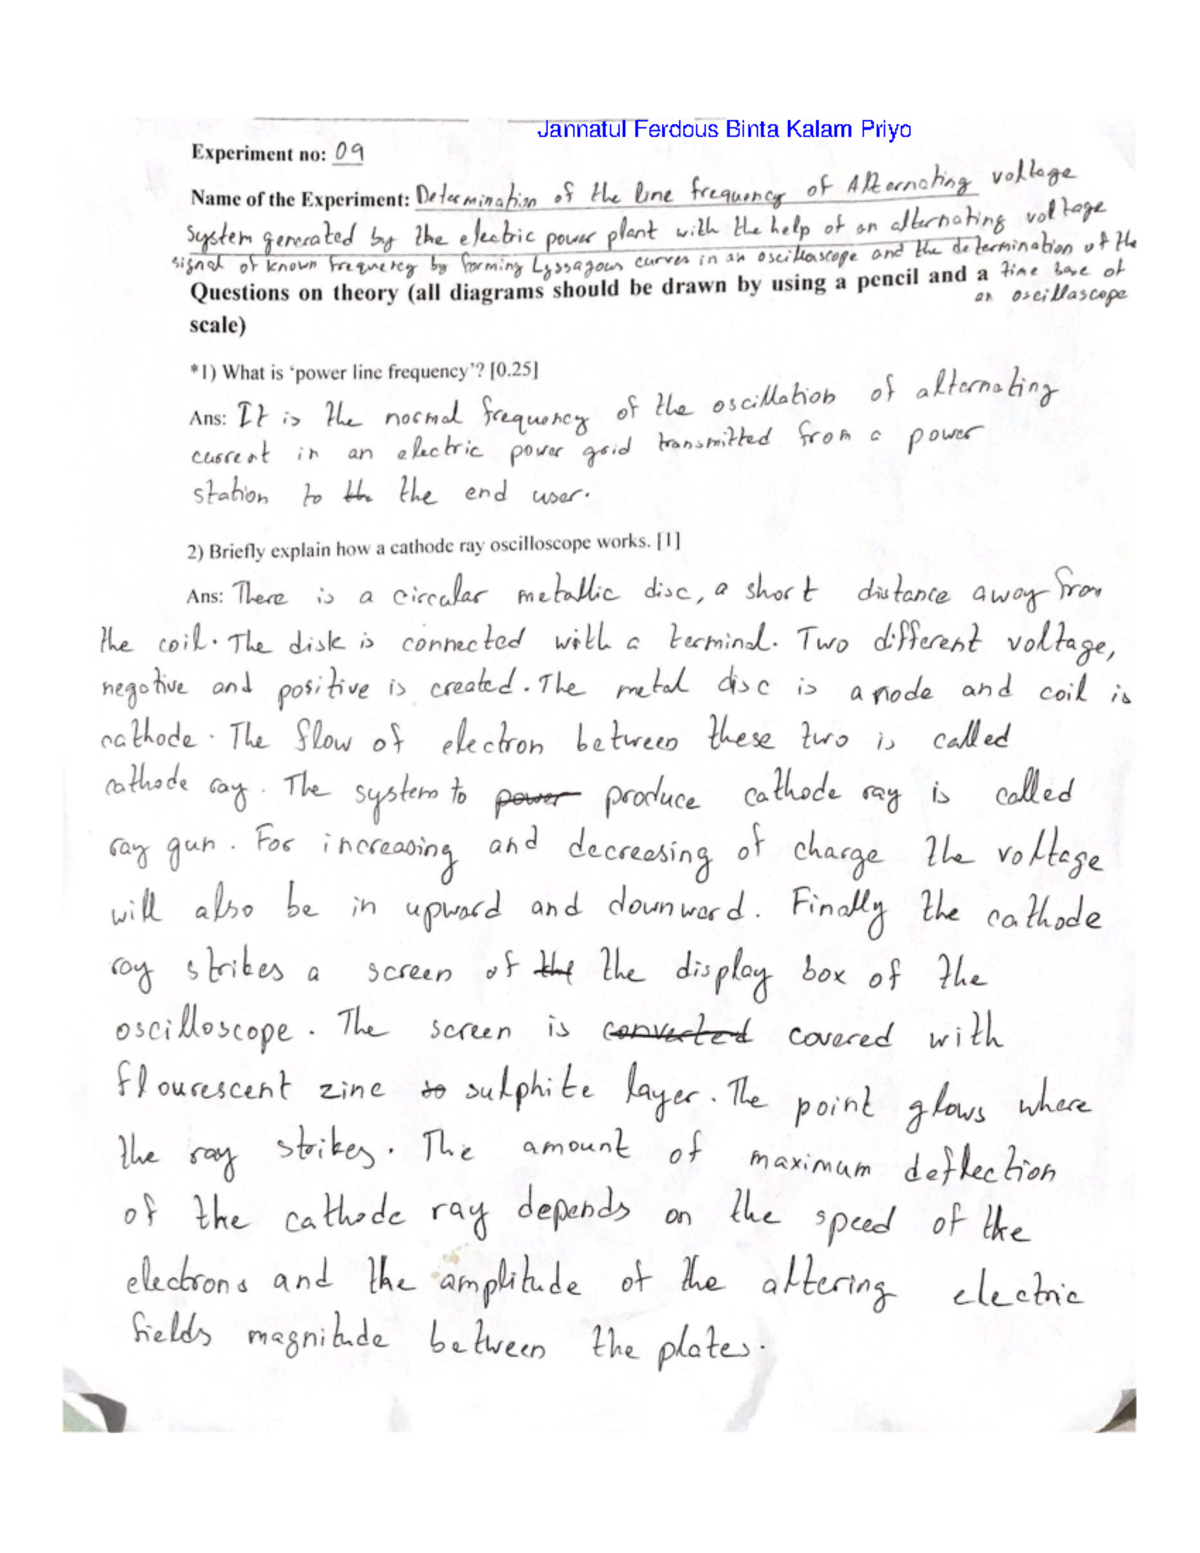 Jannatul Ferdous Binta Kalam Priyo
Experiment no: 09
Name of the Experiment: Determination of the line frequency of Alternating voltage
System generated by the electric power plant with the help of an alternating voltage
signal of known frequency by forming Lyssagous curves in an oscilloscope and the determination of the
Questions on theory (all diagrams should be drawn by using a pencil and a time base of
an oscillascope
scale)
*1) What is ‘power line frequency’? [0.25]
Ans: It is the normal frequency of the oscillation of alternating
current in an electric power grid transmitted from a power
station to the the end user.
2) Briefly explain how a cathode ray oscilloscope works. [1]
Ans: There is a circular metallic disc, a short distance away from
the coil. The disk is connected with a terminal. Two different voltage,
negative and positive is created. The metal disc is anode and coil is
cathode. The flow of electron between these two is called
cathode ray. The system to power produce cathode ray is called
ray gun. For increasing and decreasing of charge the voltage
will also be in upward and downward. Finally the cathode
ray strikes a screen of the the display box of the
oscilloscope. The screen is converted covered with
flourescent zinc so sulphite layer. The point glows where
the ray strikes. The amount of maximum deflection
of the cathode ray depends on the speed of the
electrons and the amplitude of the altering electric
fields magnitude between the plates.